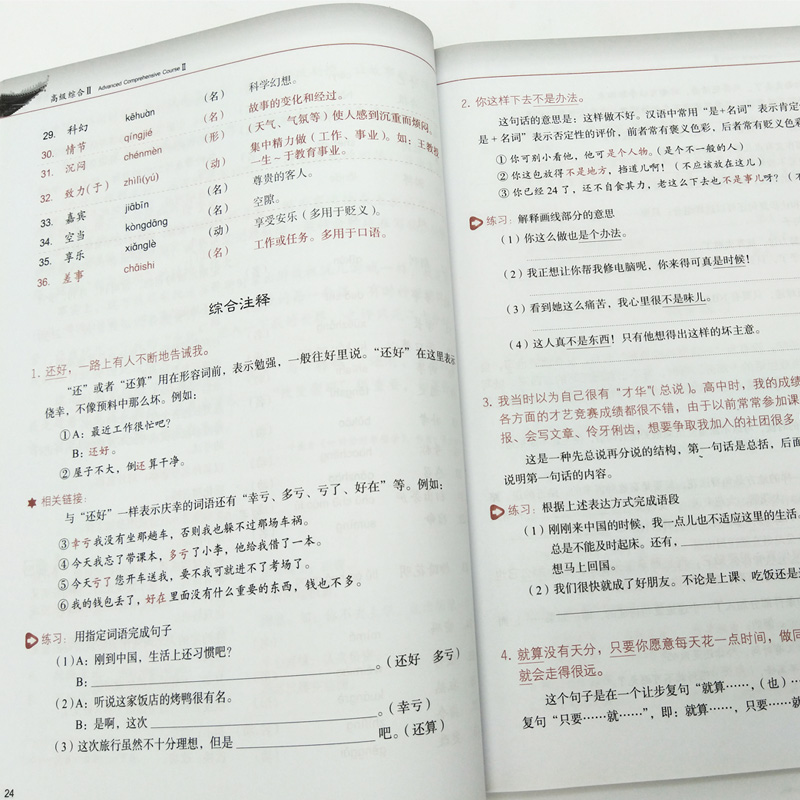 高级综合Ⅱ Advanced Comprehensive Course Ⅱ
29. 科幻 kēhuàn （名） 科学幻想。
30. 情节 qíngjié （名） 故事的变化和经过。
31. 沉闷 chénmèn （形） （天气、气氛等）使人感到沉重而烦闷。
32. 致力(于) zhìlì(yú) （动） 集中精力做（工作、事业）。如：王教授
一生～于教育事业。
33. 嘉宾 jiābīn （名） 尊贵的客人。
34. 空当 kòngdāng （名） 空隙。
35. 享乐 xiǎnglè （动） 享受安乐（多用于贬义）。
36. 差事 chāishi （名） 工作或任务。多用于口语。
综合注释
1. 还好，一路上有人不断地告诫我。
“还”或者“还算”用在形容词前，表示勉强，一般往好里说。“还好”在这里表示
侥幸，不像预料中那么坏。例如：
①A：最近工作很忙吧？
B：还好。
②屋子不大，倒还算干净。
相关链接：
与“还好”一样表示庆幸的词语还有“幸亏、多亏、亏了、好在”等。例如：
③幸亏我没有坐那趟车，否则我也躲不过那场车祸。
④今天我忘了带课本，多亏了小李，他给我借了一本。
⑤今天亏了您开车送我，要不我可就进不了考场了。
⑥我的钱包丢了，好在里面没有什么重要的东西，钱也不多。
练习：用指定词语完成句子
（1）A：刚到中国，生活上还习惯吧？
B：____________________。（还好 多亏）
（2）A：听说这家饭店的烤鸭很有名。
B：是啊，这次____________________。（幸亏）
（3）这次旅行虽然不十分理想，但是____________________吧。（还算）
24
2. 你这样下去不是办法。
这句话的意思是：这样做不好。汉语中常用“是+名词”表示肯定
是+名词”表示否定性的评价，前者常有褒义色彩，后者常有贬义色彩
①你可别小看他，他可是个人物。（是个不一般的人）
②你这包放得不是地方，挡道儿啊！（不应该放在这儿）
③你已经24了，还不自食其力，老这么下去也不是事儿呀？（不
练习：解释画线部分的意思
（1）你这么做也是个办法。
（2）我正想让你帮我修电脑呢，你来得可真是时候！
（3）看到她这么痛苦，我心里很不是味儿。
（4）这人真不是东西！只有他想得出这样的坏主意。
3. 我当时以为自己很有“才华”（总说）。高中时，我的成绩
各方面的才艺竞赛成绩都很不错，由于以前常常参加课
报、会写文章、伶牙俐齿，想要争取我加入的社团很多
这是一种先总说再分说的结构，第一句话是总括，后面
说明第一句话的内容。
练习：根据上述表达方式完成语段
（1）刚刚来中国的时候，我一点儿也不适应这里的生活。
总是不能及时起床。还有，____________________
想马上回国。
（2）我们很快就成了好朋友。不论是上课、吃饭还是
4. 就算没有天分，只要你愿意每天花一点时间，做同
就会走得很远。
这个句子是在一个让步复句“就算……，（也）……
复句“只要……就……”，即：就算……，只要……就